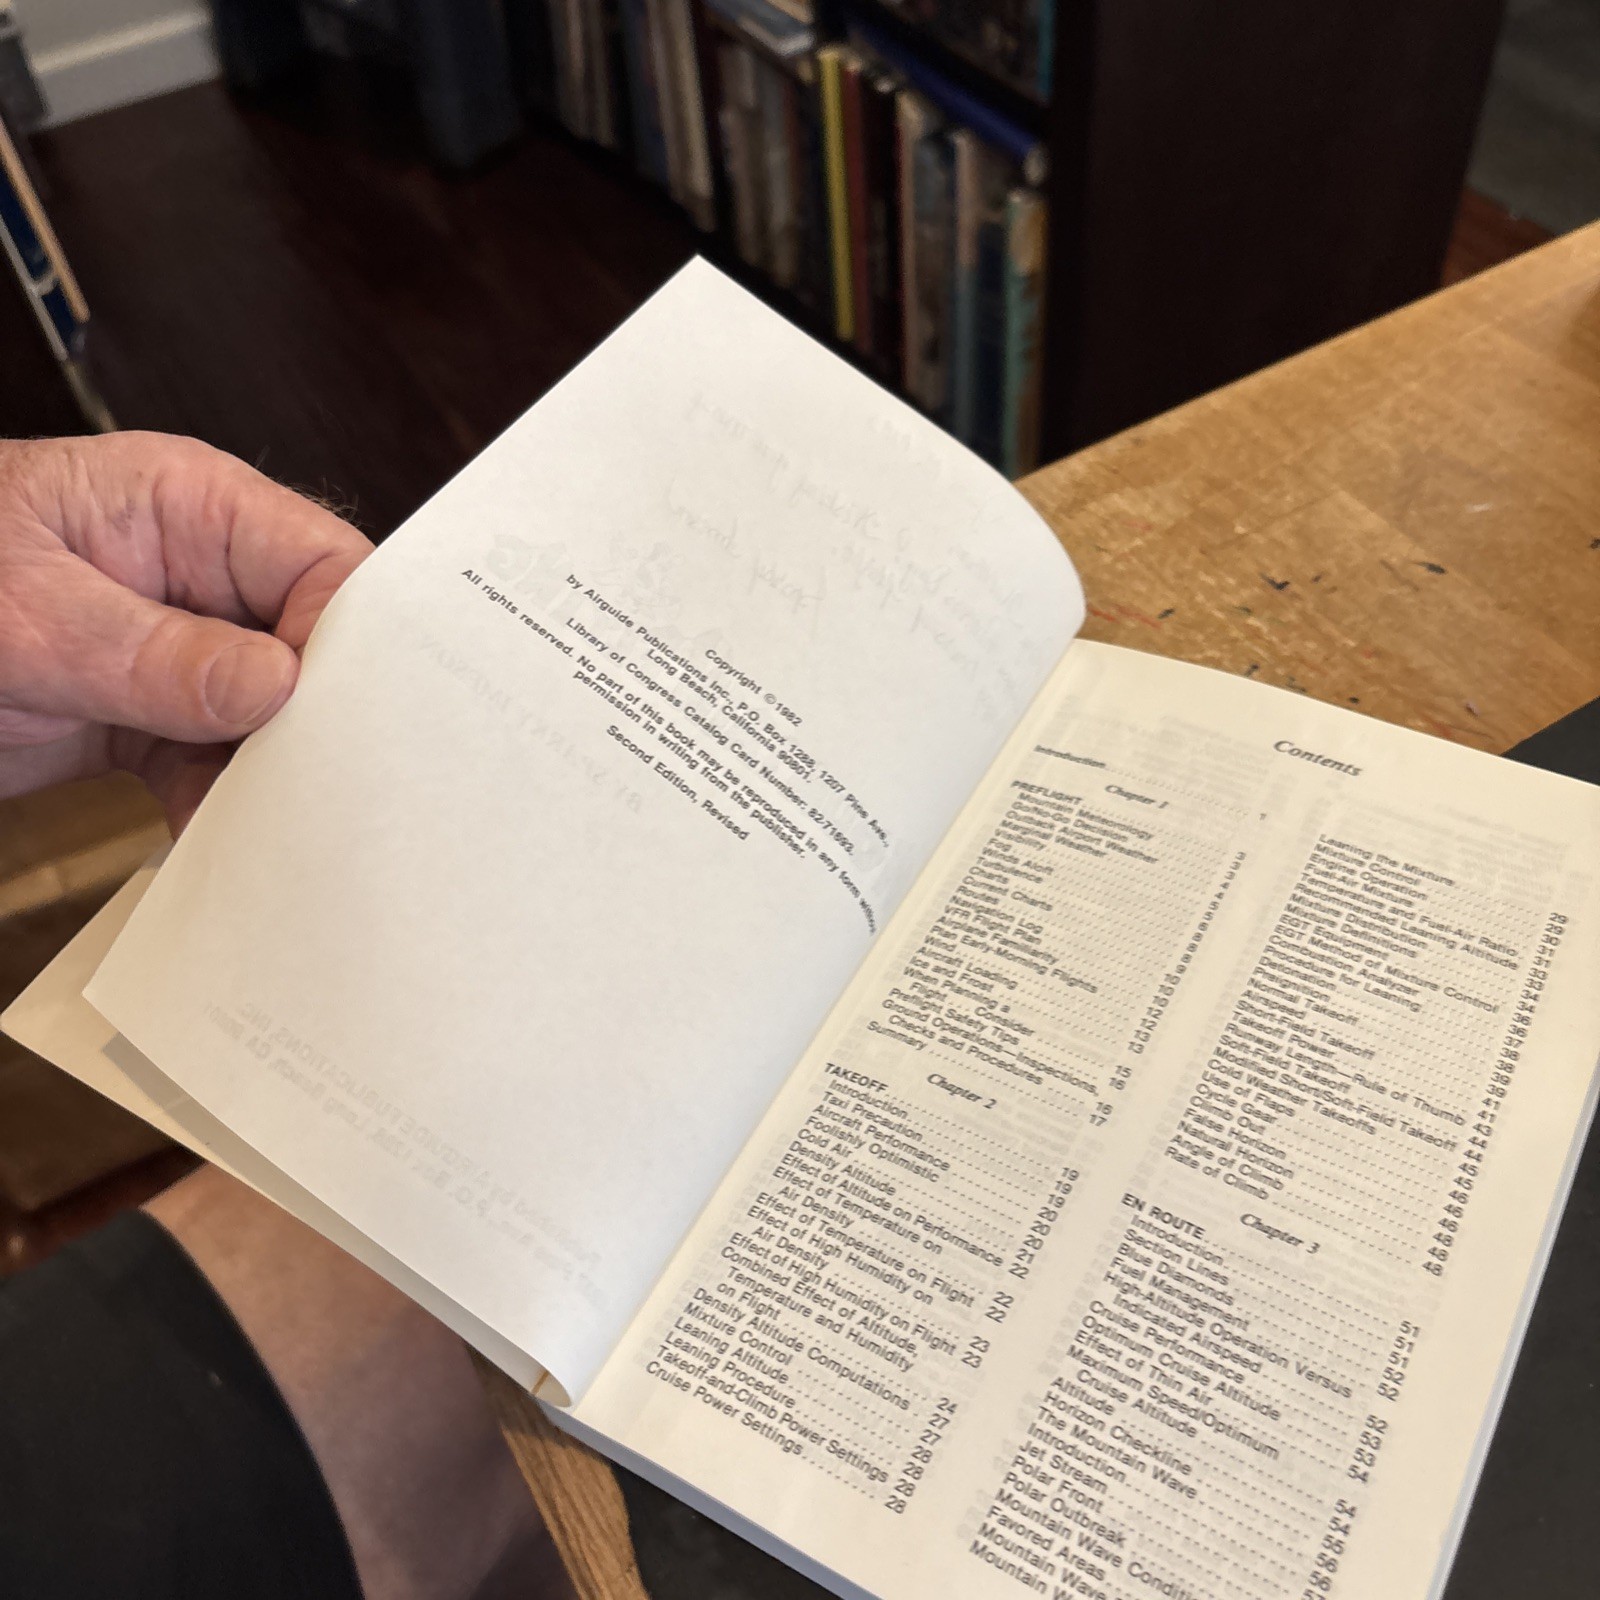 Copyright © 1982
by Airguide Publications Inc., P.O. Box 1288, 1207 Pine Ave.,
Long Beach, California 90801.
Library of Congress Catalog Card Number: 82-71693.
All rights reserved. No part of this book may be reproduced in any form without
permission in writing from the publisher.
Second Edition, Revised
Contents
Introduction 1
Chapter 1
PREFLIGHT
Mountain Meteorology 3
Go/No-Go Decision 3
Outbak Airport Weather 4
Marginal Weather
Visibility
Fog
Winds Aloft
Turbulence
Charts
Current Charts
Routes
Navigation Log
VFR Flight Plan
Airplane Familiarity
Plan Early-Morning Flights
Wind
Aircraft Loading
Ice and Frost
When Planning a
Flight, Consider
Preflight Safety Tips 15
Ground Operations—Inspections, 16
Checks and Procedures 16
Summary 17
Chapter 2
TAKEOFF
Introduction 19
Taxi Precaution 19
Aircraft Performance 19
Foolishly Optimistic 20
Cold Air 20
Density Altitude 20
Effect of Altitude on Performance 21
Effect of Temperature on
Air Density 22
Effect of Temperature on Flight 22
Effect of High Humidity on
Air Density 22
Effect of High Humidity on Flight 23
Combined Effect of Altitude,
Temperature and Humidity
on Flight 23
Density Altitude Computations 24
Mixture Control 27
Leaning Altitude 27
Leaning Procedure 28
Takeoff-and-Climb Power Settings 28
Cruise Power Settings 28
Leaning the Mixture 29
Mixture Control 29
Engine Operation 30
Fuel-Air Mixture 31
Temperature and Fuel-Air Ratio 31
Recommended Leaning Altitude 33
Mixture Distribution 33
Mixture Definitions 34
EGT Equipment 34
EGT Method of Mixture Control 36
Combustion Analyzer 36
Procedure for Leaning 37
Detonation 38
Preignition 38
Normal Takeoff 39
Airspeed 39
Short-Field Takeoff 41
Takeoff Power 41
Runway Length—Rule of Thumb 43
Soft-Field Takeoff 44
Modified Short/Soft-Field Takeoff 44
Cold Weather Takeoffs 45
Use of Flaps 45
Cycle Gear 46
Climb Out 46
False Horizon 46
Natural Horizon 48
Angle of Climb 48
Rate of Climb 48
Chapter 3
EN ROUTE
Introduction 51
Section Lines 51
Blue Diamonds 51
Fuel Management 52
High-Altitude Operation Versus
Indicated Airspeed 52
Cruise Performance 52
Optimum Cruise Altitude 53
Effect of Thin Air 53
Maximum Speed/Optimum
Cruise Altitude 54
Altitude 54
Horizon Checkline 54
The Mountain Wave
Introduction 55
Jet Stream 56
Polar Front 56
Polar Outbreak
Mountain Wave
Favored Areas
Mountain Wave
Mountain